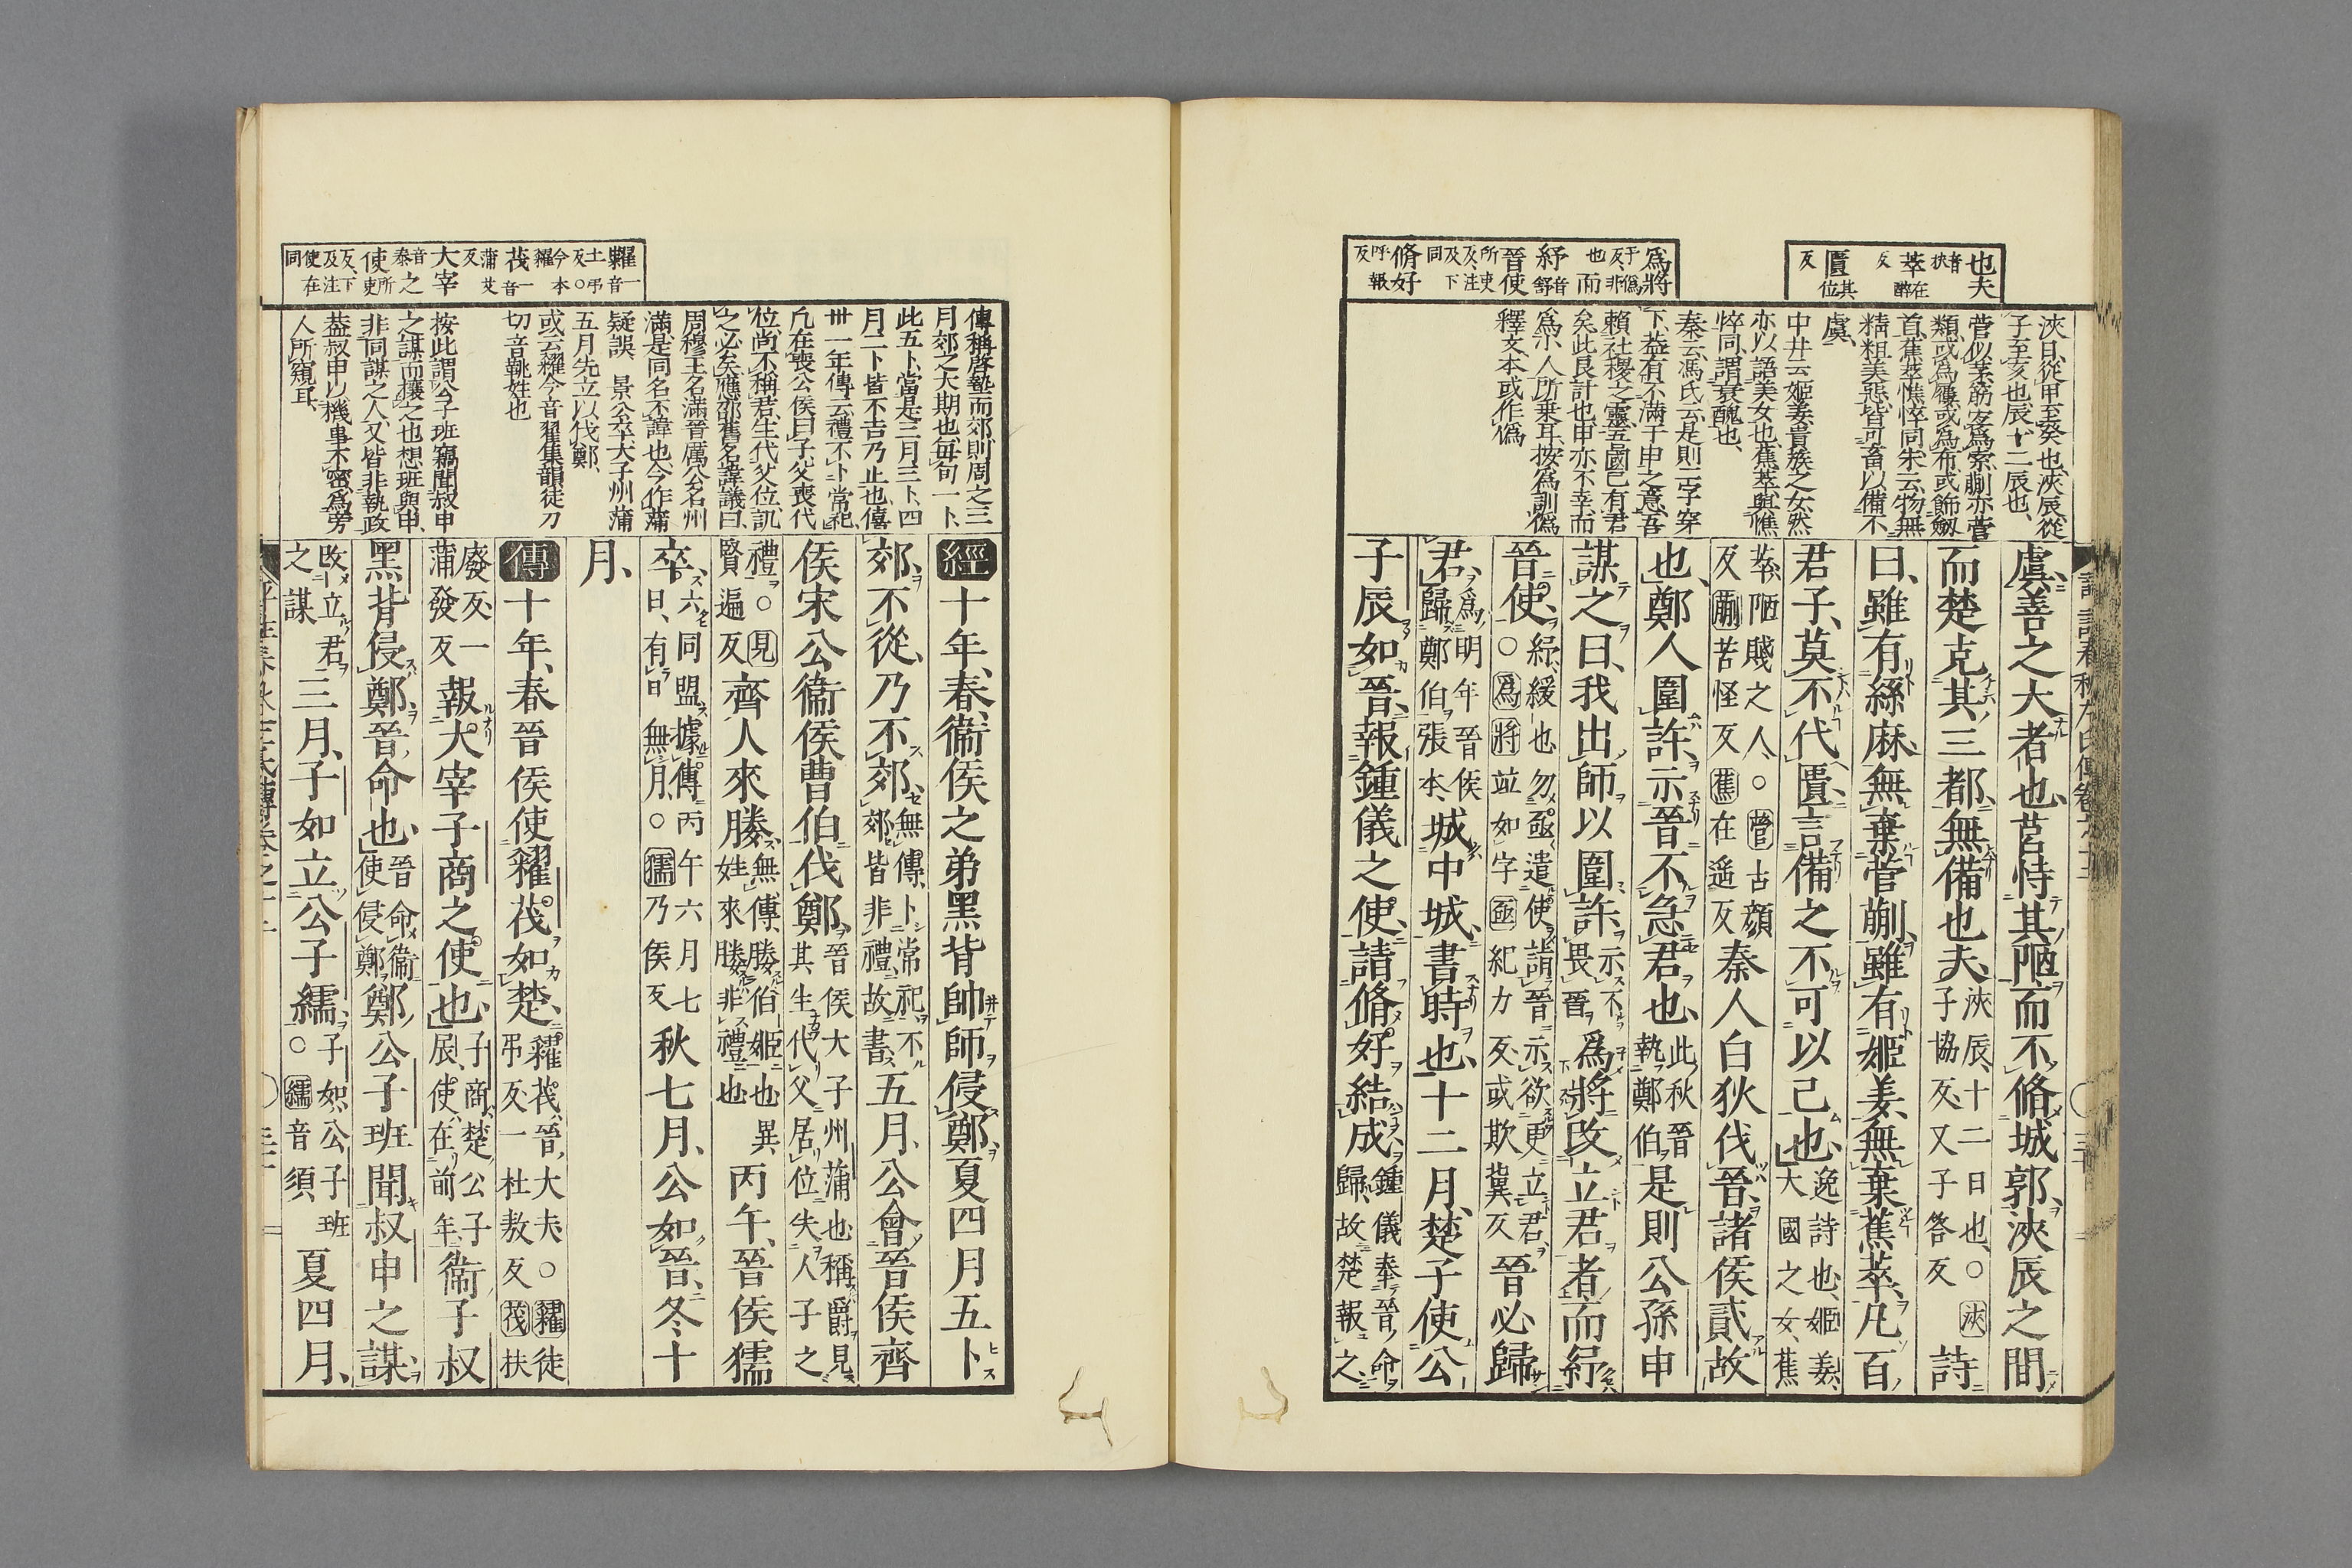 也夫
音
扶
萃
在
醉
反
匱
其
位
反
爲將
于僞
反、非
也
而
紓
音
舒
晉使
所吏
反、注
及下
同
脩好
呼報
反
浹日、從甲至癸也、浹辰、從
子至亥也、辰、十二辰也、
菅似茅、筋宏爲索、蒯亦菅
類、或爲屨、或爲布、或飾劔
首、蕉萃、憔悴同、朱云、物無
精粗美惡、皆可畜以備不
虞、
中井云、姬姜、貴族之女、然
亦以語美女也、蕉萃與憔
悴同、謂衰醜也、
秦云、馮氏云、是則二字穿
下、蓋有不滿于申之意、吾
賴社稷之靈、吾國已有君
矣、此良計也、申亦不幸而
爲小人所乗耳、按爲訓僞
釋文本或作僞
虞、善之大者也、莒恃其陋、而不脩城郭、浹辰之間、
而楚克其三都、無備也夫、浹辰、十二日也、○浹子協反、又子答反 詩
曰、雖有絲麻、無棄菅蒯、雖有姬姜、無棄蕉萃、凡百
君子、莫不代匱、言備之不可以已也、逸詩也、姬姜、大國之女、蕉
萃、陋賤之人、○菅古顔反蒯苦怪反蕉在遥反 秦人白狄伐晉、諸侯貳故
也、鄭人圍許、示晉不急君也、此秋晉執鄭伯 是則公孫申
謀之、曰、我出師以圍許、示不畏晉 爲將改立君者、而紓
晉使、紓、緩也、勿亟遣使詣晉、示欲更立君、○爲將竝如字亟紀力反、或欺冀反 晉必歸
君、爲明年晉侯歸鄭伯張本、城中城、書、時也、十二月、楚子使公
子辰如晉、報鍾儀之使、請脩好結成、鍾儀奉晉命歸、故楚報之、
糴
一音
土弔
反○
今本
糴
茷
一音
蒲艾
反
大宰
音
泰
之
使
所吏
反、下
及注
使在
同
傳稱啓蟄而郊、則周之三
月、郊之大期也、毎旬一卜、
此五卜、當是三月三卜、四
月二卜、皆不吉乃止也、僖
卅一年傳云、禮不卜常祀、
凡在喪、公侯曰子、父喪代
位、尚不稱君、生代父位、訊
之必矣、應邵舊名諱議曰、
周穆王名滿、晉厲公名州
滿、是同名不諱也、今作蒲
疑誤、　景公卒、大子州蒲
五月先立以伐鄭、
或云、糴今音翟、集韻徒刀
切、音鞉、姓也
按此、謂公子班竊聞叔申
之謀、而攘之也、想班與申、
非同謀之人、又皆非執政
蓋叔申以機事不密、爲旁
人所窺耳、
經 十年、春、衞侯之弟黑背帥師侵鄭、夏四月、五卜
郊、不從、乃不郊、無傳、卜常祀、不郊、皆非禮、故書、五月、公會晉侯齊
侯宋公衞侯曹伯伐鄭、晉侯大子州蒲也、稱爵、見其生代父居位、失人子之
禮、○見賢遍反 齊人來媵、無傳、媵伯姬也、異姓來媵、非禮也 丙午、晉侯獳
卒、六同盟、據傳丙午六月七日、有日無月、○獳乃侯反 秋七月、公如晉、冬十
月、
傳 十年、春、晉侯使糴茷如楚、糴茷、晉大夫、○糴徒弔反、一杜敖反茷扶
廢反、一蒲發反 報大宰子商之使也、子商、楚公子辰、使在前年、衞子叔
黑背侵鄭、晉命也、晉命衞使侵鄭 鄭公子班聞叔申之謀、
改立君之謀 三月、子如立公子繻、子如、公子班○繻音須 夏四月、